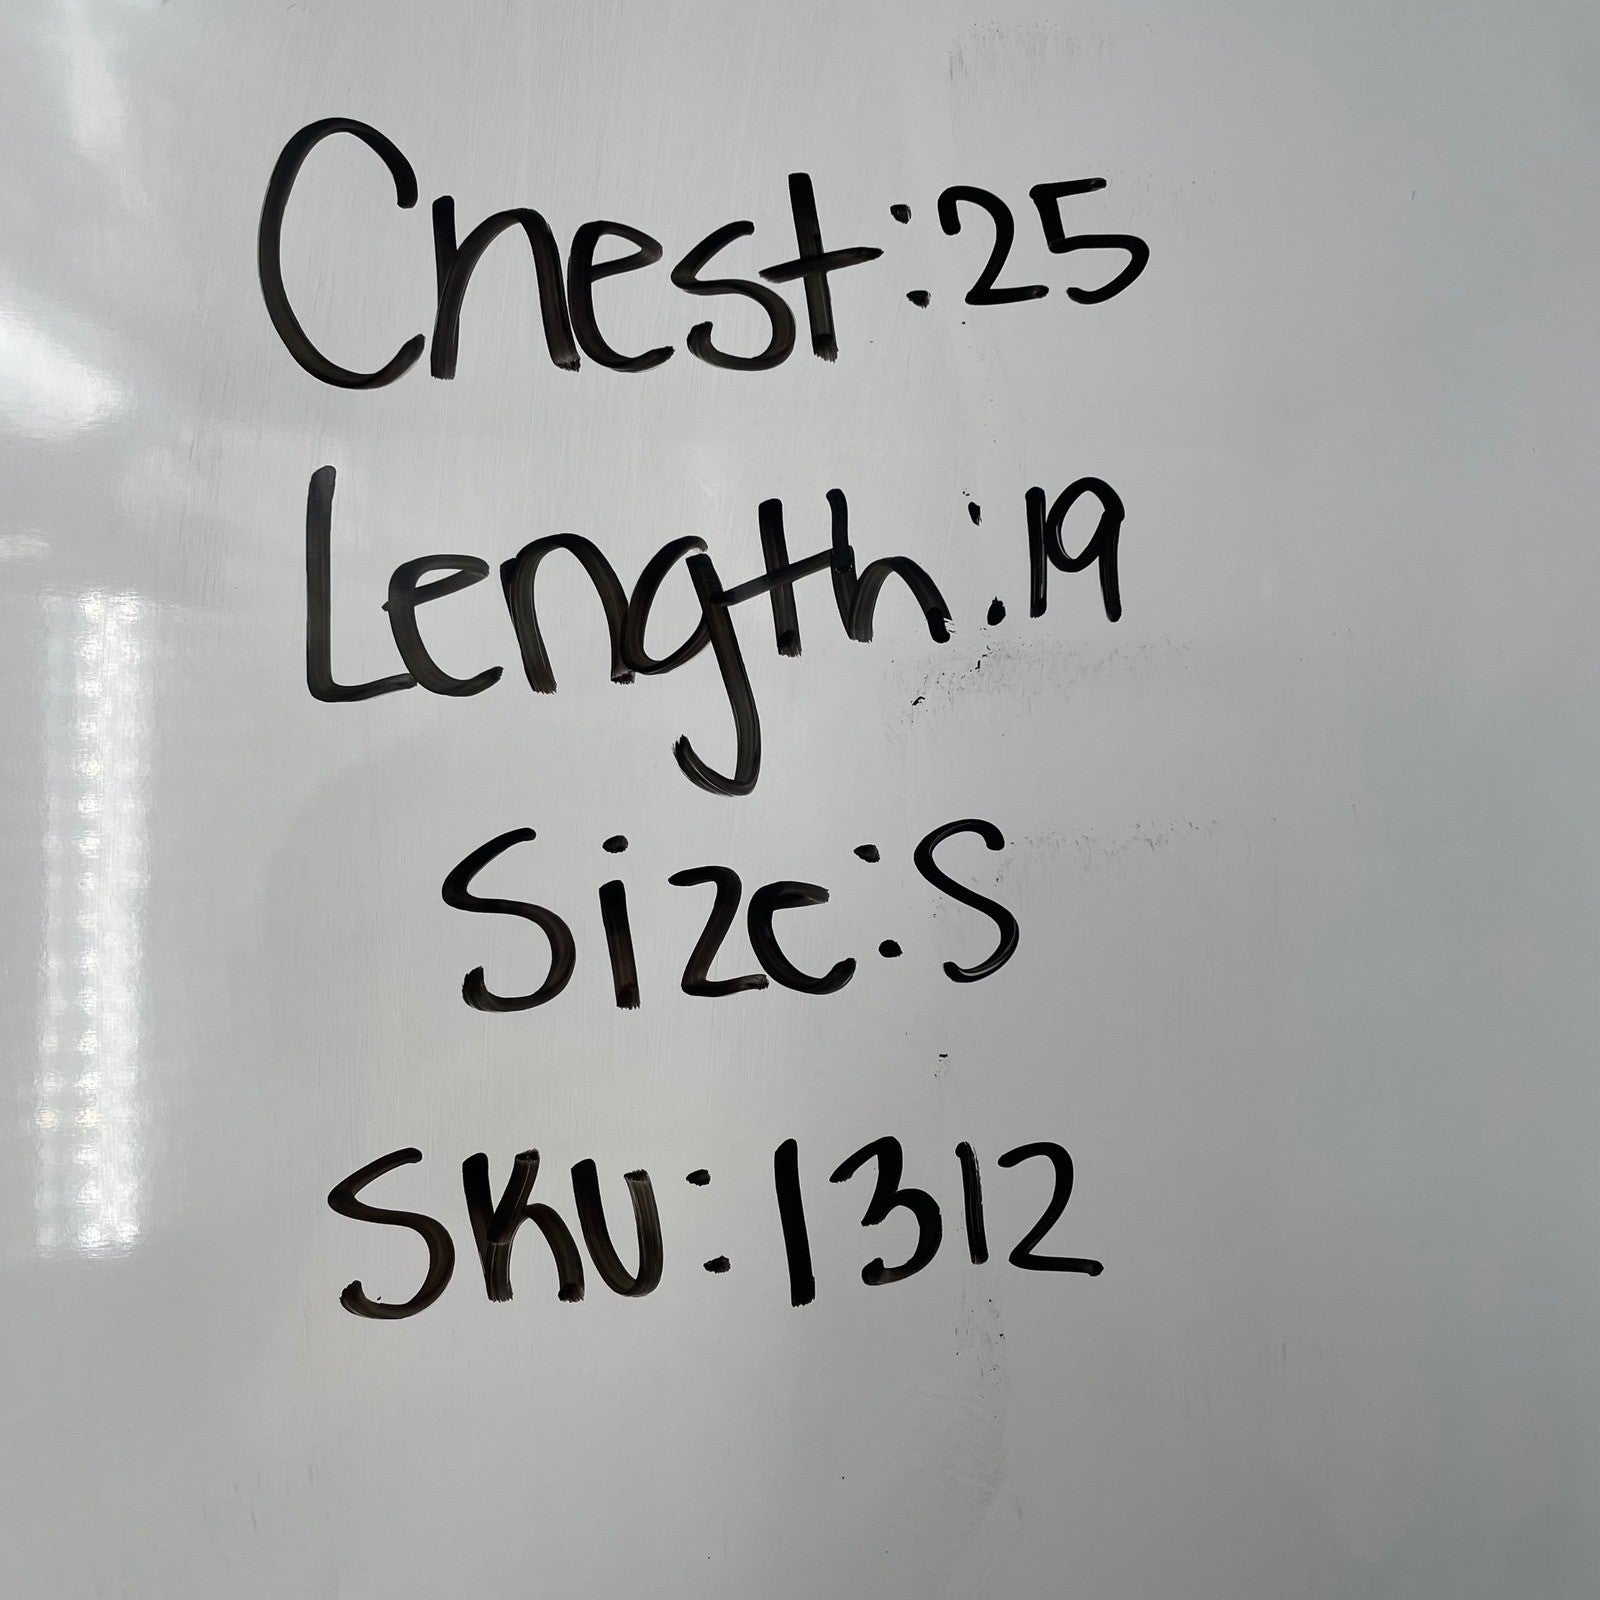 Chest:25
Length:19
Size:S
SKU:1312